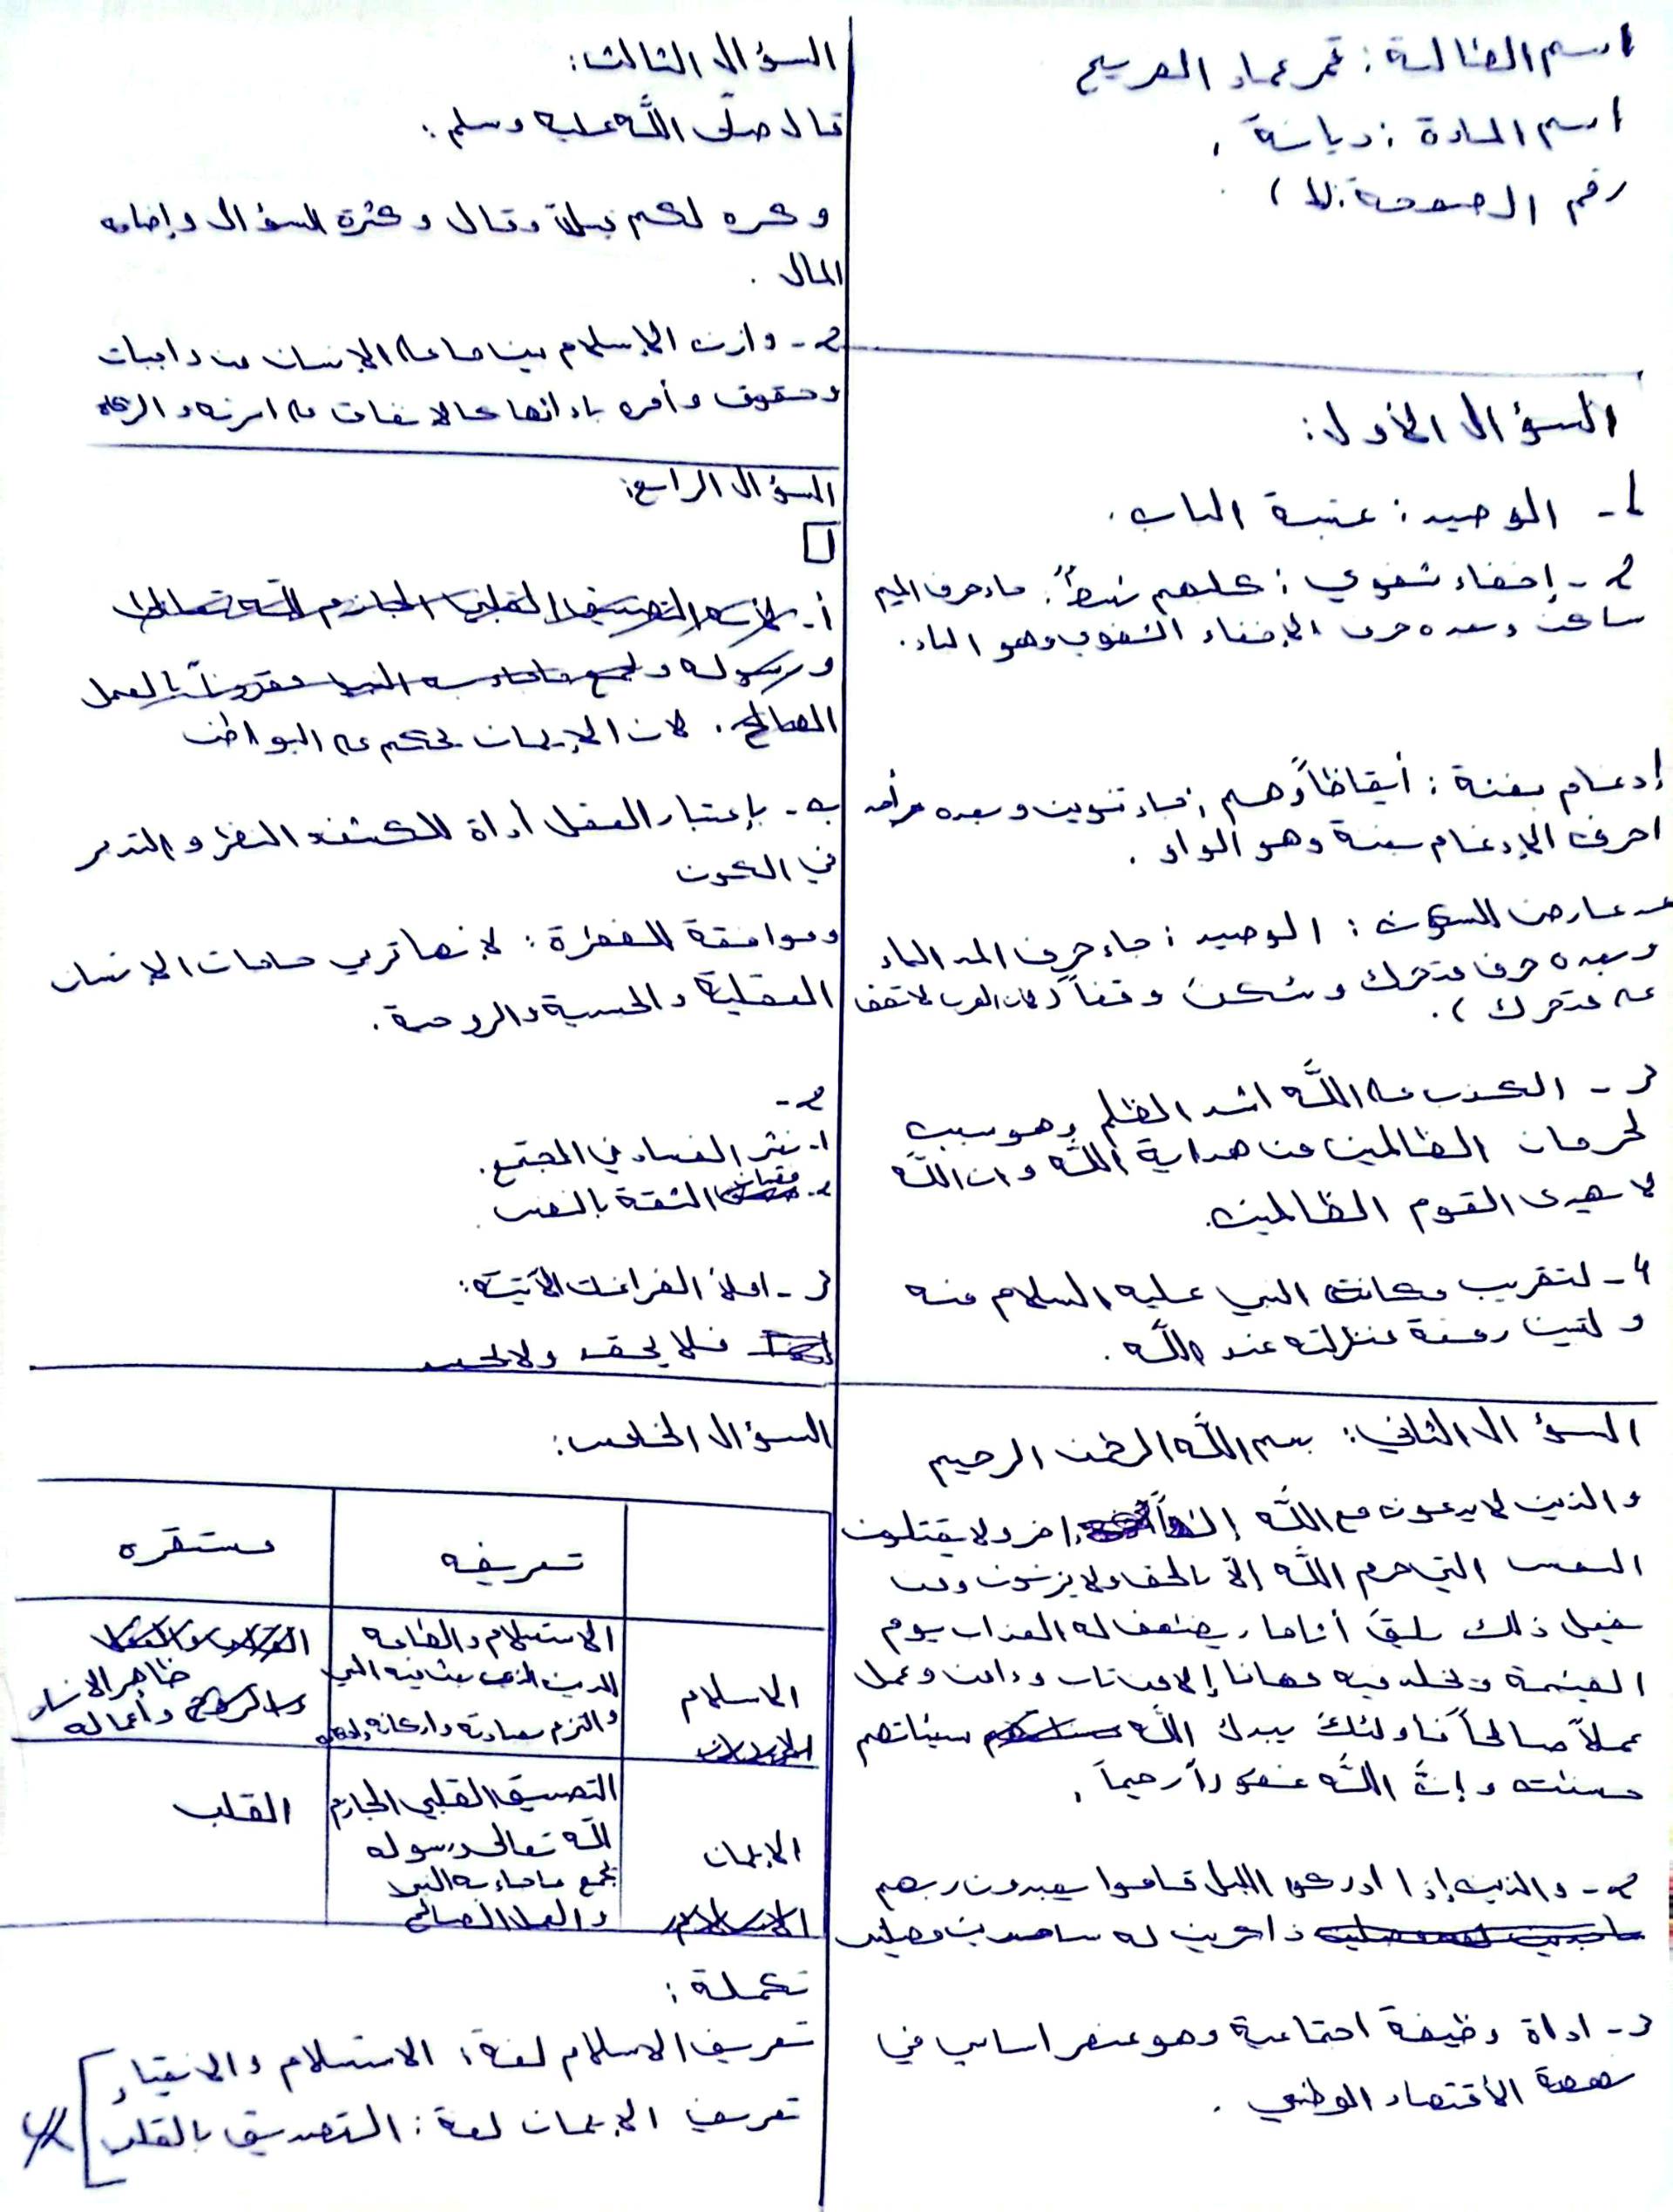 اسم الطالبة: قمر عماد المريح
اسم المادة: ديانة.
رقم الصفحة: (1)
السؤال الأول:
1- الوصيد: عتبة الباب.
2- إخفاء شفوي: كلبهم باسط: جاء حرف الميم
ساكن وبعده حرف الإخفاء الشفوي وهو الباء.
إدغام بغنة: أيقاظاً وهم: جاء تنوين وبعده
احرف الإدغام بغنة وهو الواو.
مد عارض للسكون: الوصيد: جاء حرف المد الياء
وبعده حرف متحرك وسُكن وقفاً (لأن العرب لا تقف
على متحرك).
3- الكذب على الله اشد الظلم وهو سبب
لحرمان الظالمين من هداية الله وان الله
لا يهدي القوم الظالمين.
4- لتقريب مكانة النبي عليه السلام منه
ولتبين رفعة منزلته عند الله.
السؤال الثاني: بسم الله الرحمن الرحيم
والذين لا يدعون مع الله إلهاً اخر ولا يقتلون
النفس التي حرم الله إلّا بالحق ولا يزنون ومن
يفعل ذلك يلقَ أثاما، يضعف له العذاب يوم
القيمة ويخلد فيه مهانا إلا من تاب وءامن وعمل
عملاً صالحاً فأولئكَ يبدل الله سيئاتهم
حسنت وإنَّ الله غفوراً رحيماً.
2- والذين إذا ادركهم الليل قاموا يعبدون ربهم
ذاكرين له ساجدين مصلين
3- اداة وظيفة اجتماعية وهو عنصر اساسي في
نهضة الأقتصاد الوطني.
السؤال الثالث:
قال صلّى اللَّه عليه وسلم:
وكره لكم قيلَ وقال وكثرة السؤال وإضاعه
المال.
2- وازن الإسلام بين ما على الإنسان من واجبات
وحقوق وأمره بادائها كالانفاق على اسرته والزكاة
السؤال الرابع:
1
أ-
لان الإيمان يحكم على البواطن
ب- بإعتبار العقل أداة للكشف و النظر والتدبر
في الكون
وموافقة للفطرة: لانها تربي حاجات الإنسان
العقلية والحسية والروحية.
2-
1- نشر الفساد في المجتمع.
2- فقدان الثقة بالنفس.
3- املأ الفراغات الآتية:
فلا يحقد ولا يحسد
السؤال الخامس:
تعريفه مستقره
الاسلام الاستسلام والطاعه
للدين الذي بعث فيه النبي
والتزم بمبادئه واركانه
ظاهر الانسان
وأعماله
الايمان التصديق القلبي الجازم
للَّه تعالى ورسوله
بجميع ما جاء به النبي
والعمل الصالح
القلب
تكملة:
تعريف الاسلام لغة: الاستسلام والانقياد
تعريف الايمان لغة: التصديق بالقلب